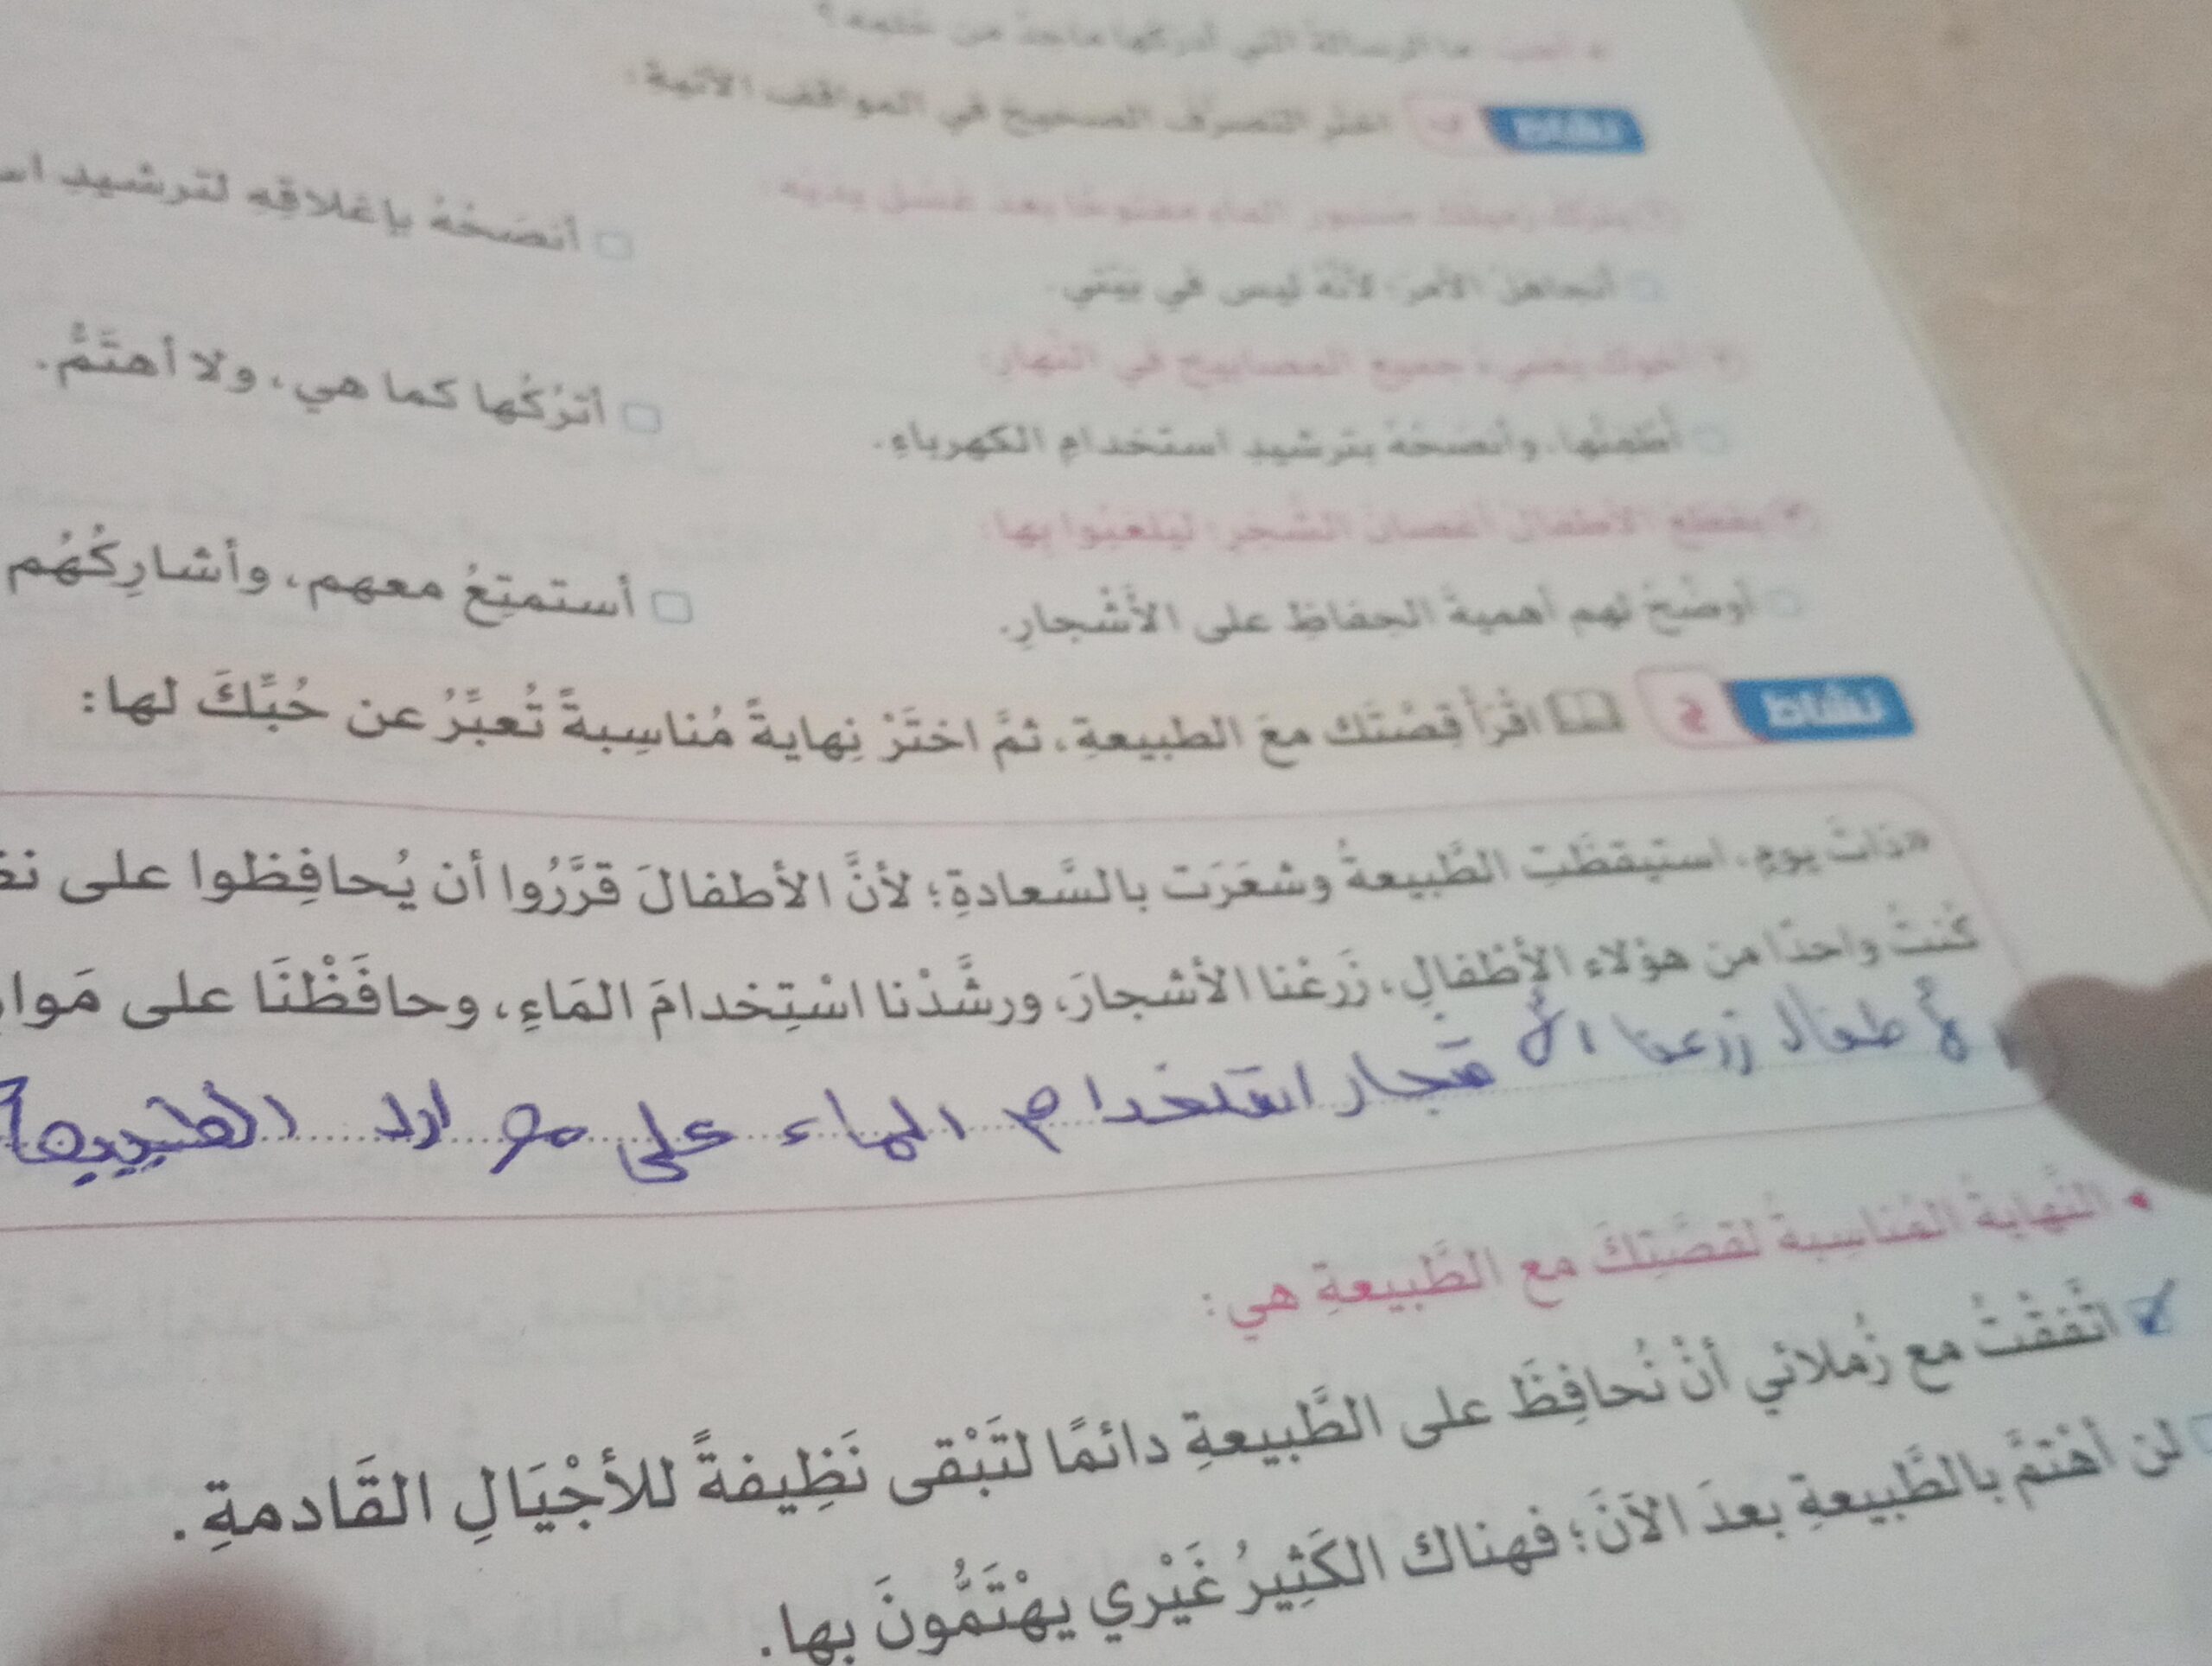 ما الرسالة التي أدركها ماجد من حلمه؟
نشاط ب اختر التصرف الصحيح في المواقف الآتية:
صنبور الماء مفتوحًا بعد غسل يديه.
أتجاهل الأمر؛ لأنَّهُ ليس في بيتي. أنصَحُهُ بإغلاقِهِ لترشيدِ
أخوك يضيء جميع المصابيح في النَّهار.
أُطفئها، وأنصَحُهُ بترشيدِ استخدامِ الكهرباءِ. أترُكُها كما هي، ولا أهتَمُّ.
يقطع الأطفال أغصان الشَّجر؛ ليلعبوا بها.
أوضِّحُ لهم أهميةَ الحِفاظِ على الأَشْجارِ. أستمتِعُ معهم، وأشارِكُهُم
نشاط ج اقْرَأْ قِصَّتَك معَ الطبيعةِ، ثمَّ اختَرْ نِهايةً مُناسِبةً تُعبِّرُ عن حُبِّكَ لها:
«ذاتَ يومٍ، استيقظَتِ الطَّبيعةُ وشعَرَت بالسَّعادةِ؛ لأنَّ الأطفالَ قرَّرُوا أن يُحافِظوا على
كُنتُ واحدًا من هؤلاء الأطْفالِ، زَرعْنا الأشجارَ، ورشَّدْنا اسْتِخدامَ المَاءِ، وحافَظْنَا على
الأطفال زرعنا الأ شجار استخدام الماء على مو ارد الطبيعة
• النِّهايةُ المُناسِبةُ لقصَّتِكَ مع الطَّبيعةِ هي:
اتَّفَقْتُ مع زُملائي أنْ نُحافِظَ على الطَّبيعةِ دائمًا لتَبْقى نَظِيفةً للأجْيَالِ القَادمةِ.
لن أهْتمَّ بالطَّبيعةِ بعدَ الآنَ؛ فهناك الكَثِيرُ غَيْري يهْتَمُّونَ بها.